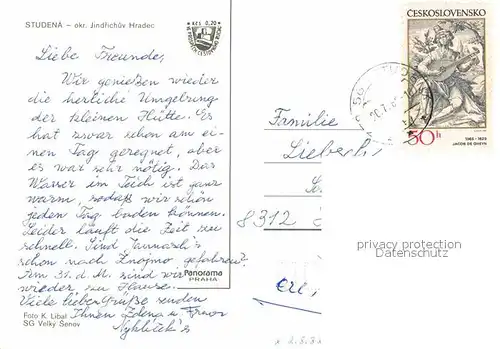 STUDENÁ – okr. Jindřichův Hradec
Kčs 0,20
Liebe Freunde,
Wir genießen wieder
die herrliche Umgebung
der kleinen Hütte. Es
hat zwar schon am ei-
nen Tag geregnet, aber
es war sehr nötig. Das
Wasser im Teich ist ganz
warm, sodaß wir schön
jeden Tag baden können.
Leider läuft die Zeit zu
schnell. Sind
schon nach Znojmo gefahren?
Am 31. d. M. sind wir
wieder zu Hause.
Viele liebe Grüße senden
Ihnen Zdena u. Franz
Foto K. Líbal
SG Velký Šenov
Panorama
PRAHA
ČESKOSLOVENSKO
50h
1565 - 1629
JACOB DE GHEYN
Familie
8312
privacy protection
Datenschutz